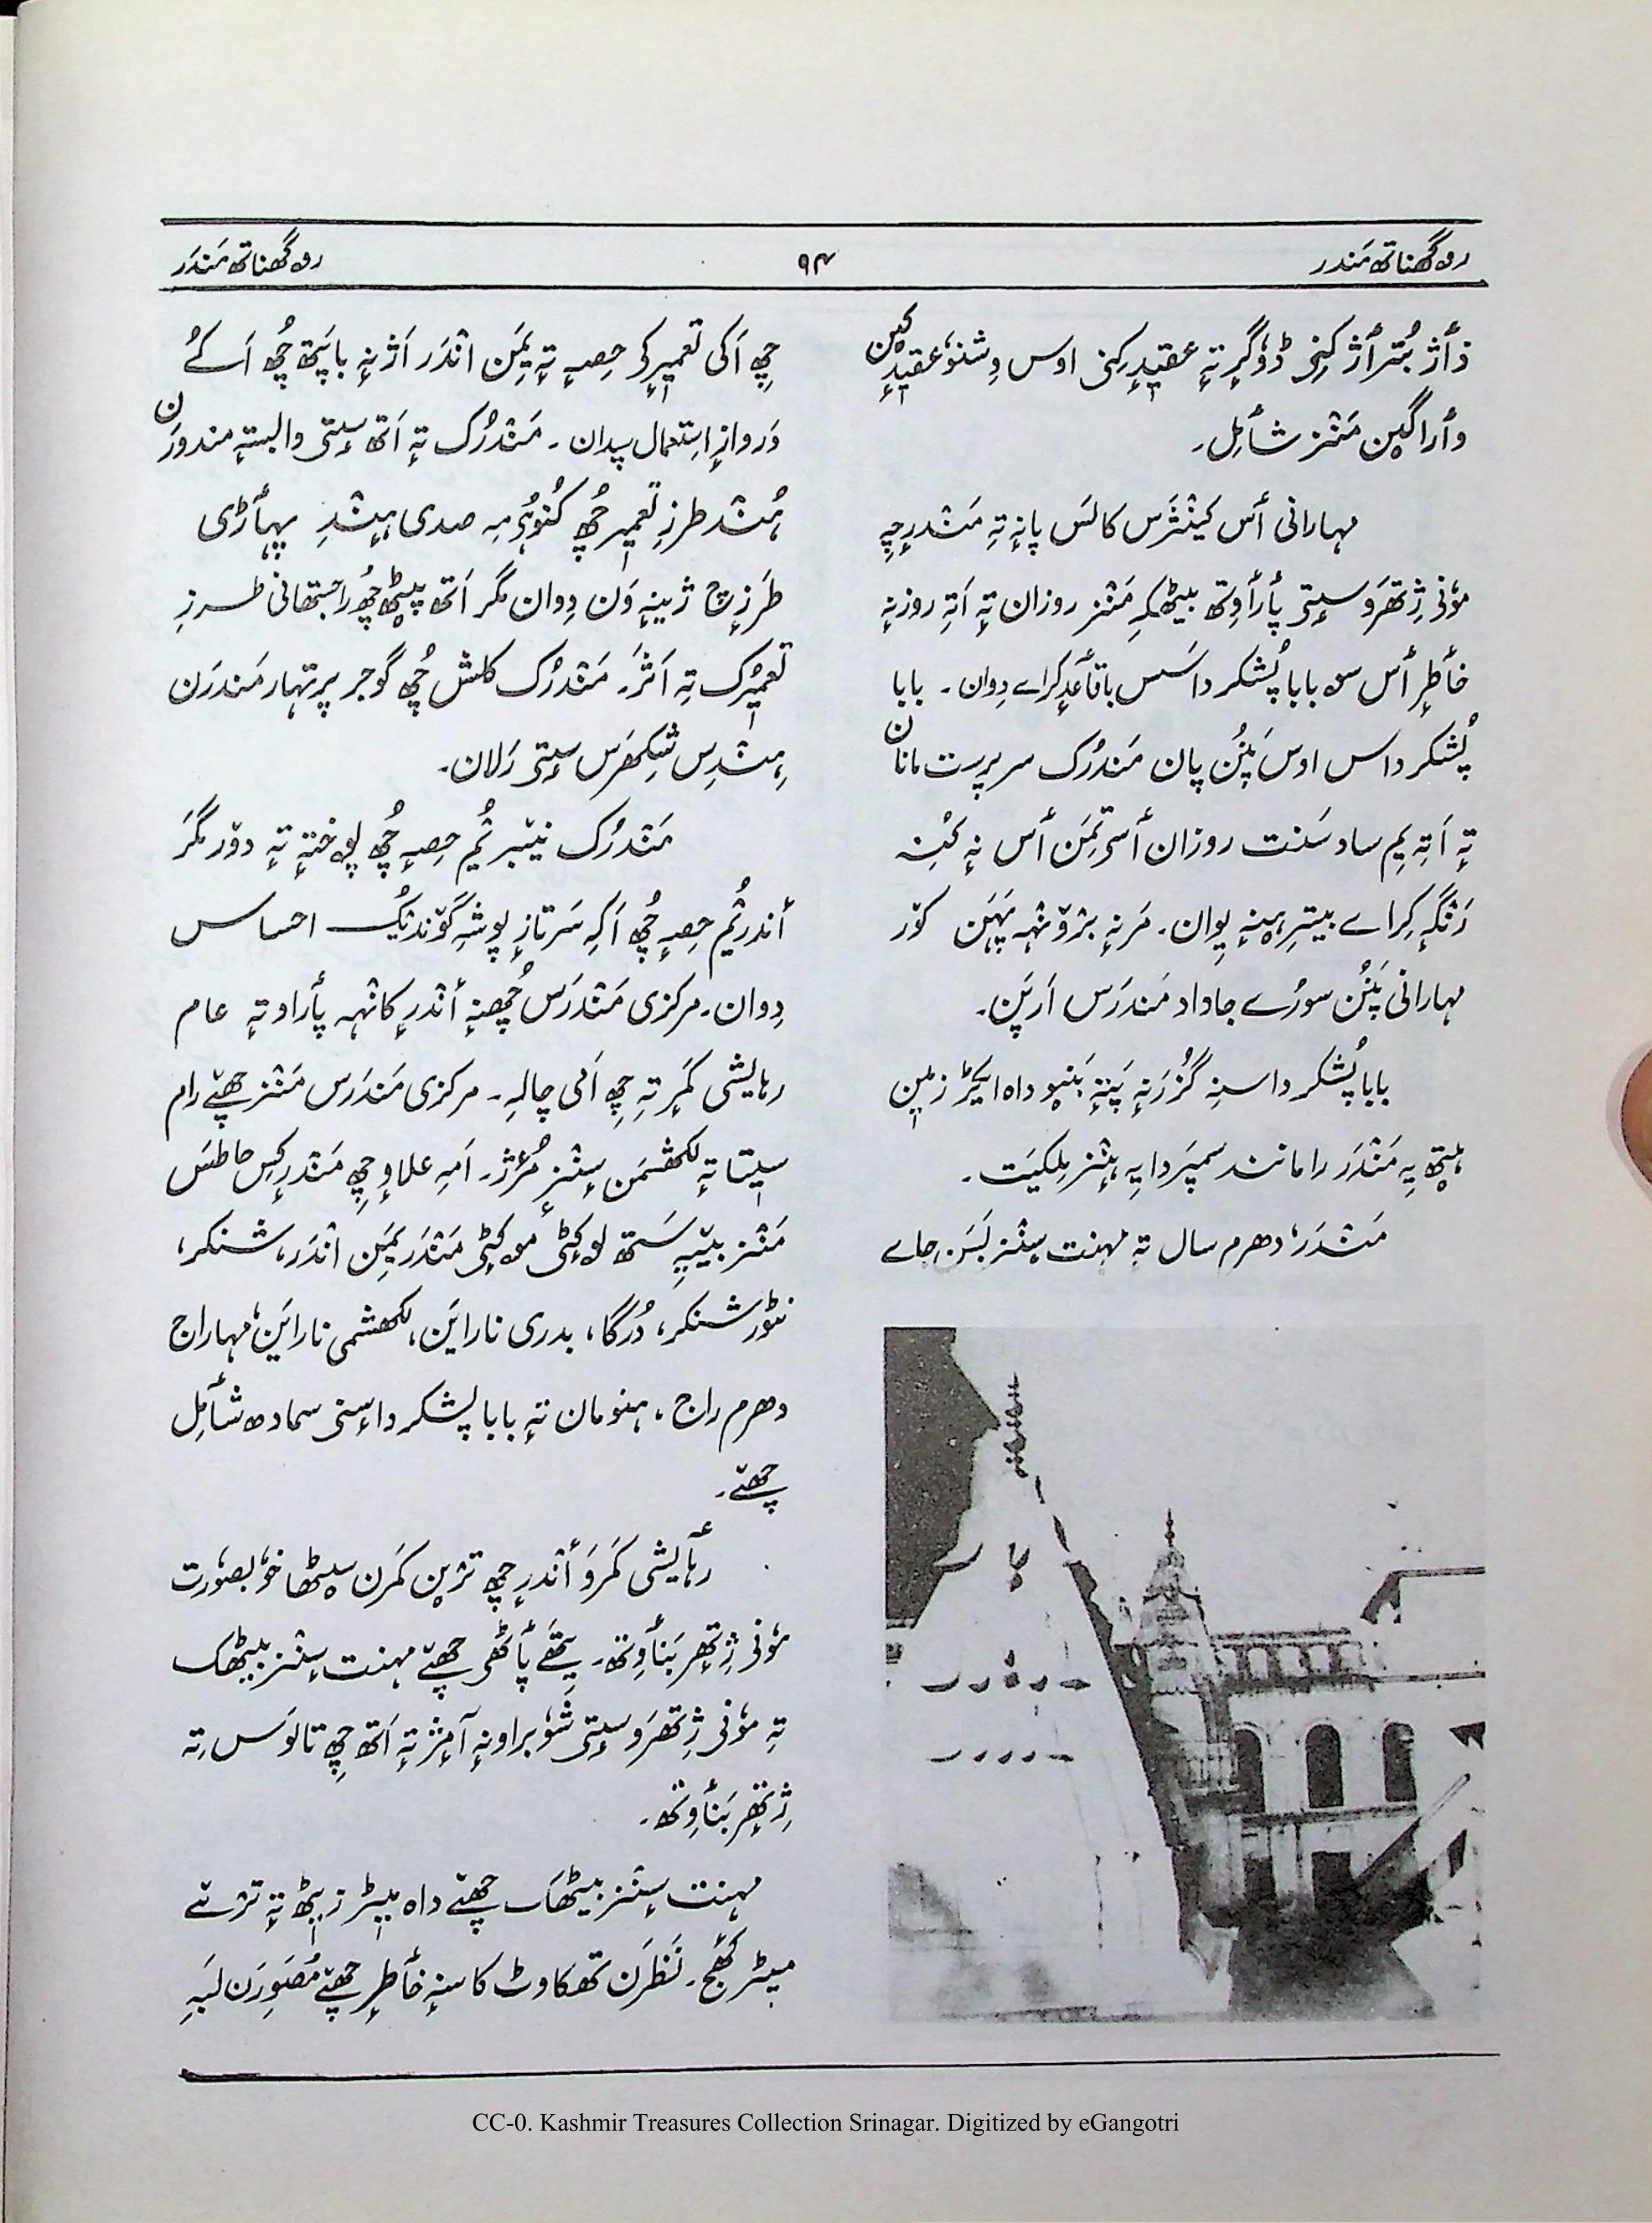 روگھناتھ مَندر
۹۴
روگھناتھ مَندَر
ذٲژ بُتراژ کِنۍ ڈوگرٕ تہٕ عقیدٕ کِنۍ اوس وِشنو عقیدٕکین
وٲراگین مَنٛز شٲمِل۔
مہارانی ٲس کینٛژَس کالَس پانہٕ تہِ مَنٛدرٕچہِ
مۄنی ژِتھرَو سٟتۍ پٲرٲوِتھ بیٹھکہِ مَنٛز روزان تہٕ اَتہِ روزنہٕ
خٲطرٕ ٲس سۄ بابا پُشکر داسَس باقٲعدٕ کراے دِوان۔ بابا
پُشکر داس اوس پَنُن پان مَندرُک سرپرست مانان
تہٕ اَتہِ یِم ساد سَنت روزان ٲسۍ تِمَن ٲس نہٕ کُنہِ
رَنٛگہٕ کِراے بیترِ ہینہٕ یِوان۔ مَرنہٕ برٛونٛہہ پَہَن کوٚر
مہارانی پَنُن سورُے جاداد مَندرَس اَرپَن۔
بابا پُشکر داسنہِ گُزرَنہٕ پَتہٕ بَنیو داہ ایکڑ زمین
ہیتھ یہِ مَنٛدَر رامانند سمپَردایہِ ہٕنٛز مِلکیَت۔
مَنٛدَر، دھرم سال تہٕ مہنت سٕنٛز بَسَن جاے
چھِ اَکی تعمیرٕکۍ حِصہٕ تہٕ یِمَن انٛدَر اَژنہٕ باپَتھ چھُ اَکُے
دَروازٕ اِستعمال سپدان۔ مَنٛدرُک تہٕ اَتھ سٟتۍ وابستہٕ مندورَن
ہُنٛد طرزِ تعمیر چھُ کُنوُہِمہِ صدی ہٕنٛدِ پہاڑی
طَرزٕچ زٕینہٕ وَن دِوان مگر اَتھ پیٹھ چھُ راجستھانی طرزِ
تعمیٖرُک تہِ اَثَر۔ مَنٛدرُک کلَش چھُ گوجر پرتہار مَندرَن
ہٕنٛدِس شِکھرَس سٟتۍ رَلان۔
مَنٛدرُک نیٚبرِیُم حِصہٕ چھُ پوختہٕ تہٕ دوٚر مگر
ٲندرِیُم حِصہٕ چھُ اَکہِ سَرتازٕ پوشہِ گۄندنُک احساس
دِوان۔ مرکزی مَنٛدرَس چھُنہٕ ٲنٛدرٕ کانٛہہ پٲراو تہٕ عام
رہایشی کَمرٕ تہِ چھِ اَمی چالہِ۔ مرکزی مَندرَس مَنٛز چھےٚ رام
سیتا تہٕ لکھشمَن سٕنٛزٕ مُرٛژ۔ اَمہِ علاوٕ چھِ مَنٛدرٕکِس حاطَس
مَنٛز بیٚیہِ سَتھ لۄکٹۍ موکٹۍ مَنٛدَر یِمَن انٛدَر، شنکر،
نٹورشنکر، دُرگا، بدری ناراین، لکھشمی ناراین، مہاراج
دھرم راج، ہنومان تہٕ بابا پشکر داسنۍ سمادھ شٲمِل
چھےٚ۔
رہٲیشی کَمرَو ٲنٛدرٕ چھِ ترٛین کَمرن سٮ۪ٹھا خوبصوٗرت
مۄنی ژِتھرٕ بَنٲوِتھ۔ یِتھَے پٲٹھۍ چھےٚ مہنت سٕنٛز بیٹھک
تہِ مۄنی ژِتھرَو سٟتۍ شوٗبراونہٕ آمٕژ تہٕ اَتھ چھِ تالوَس تہِ
ژِتھرٕ بَنٲوِتھ۔
مہنت سٕنٛز بیٹھک چھےٚ داہ میٖٹر زیٖٹھ تہٕ ترٛے
میٹر کھٔج۔ نَظرَن تھکاوٹ کاسنہٕ خٲطرٕ چھےٚ مُصَوِرَن لَبہِ
CC-0. Kashmir Treasures Collection Srinagar. Digitized by eGangotri